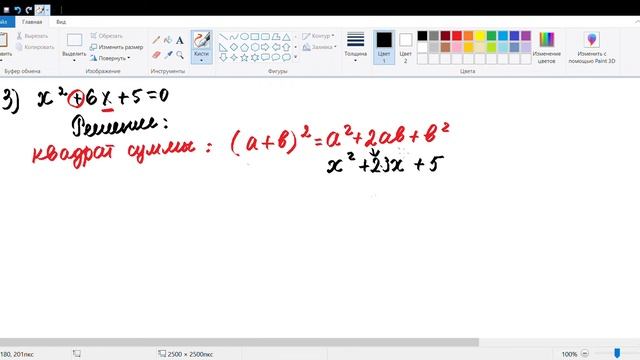 Вставить
Копировать
Выделить
Обрезать
Изменить размер
Повернуть
Кисти
Контур
Заливка
Толщина
Цвет 1
Цвет 2
Изменение цветов
Изменить с помощью Paint 3D
Буфер обмена
Изображение
Инструменты
Фигуры
Цвета
3) x² + 6x + 5 = 0
Решение:
квадрат суммы: (a+b)² = a² + 2ab + b²
x² + 23x + 5
180, 201пкс
2500 × 2500пкс
100%